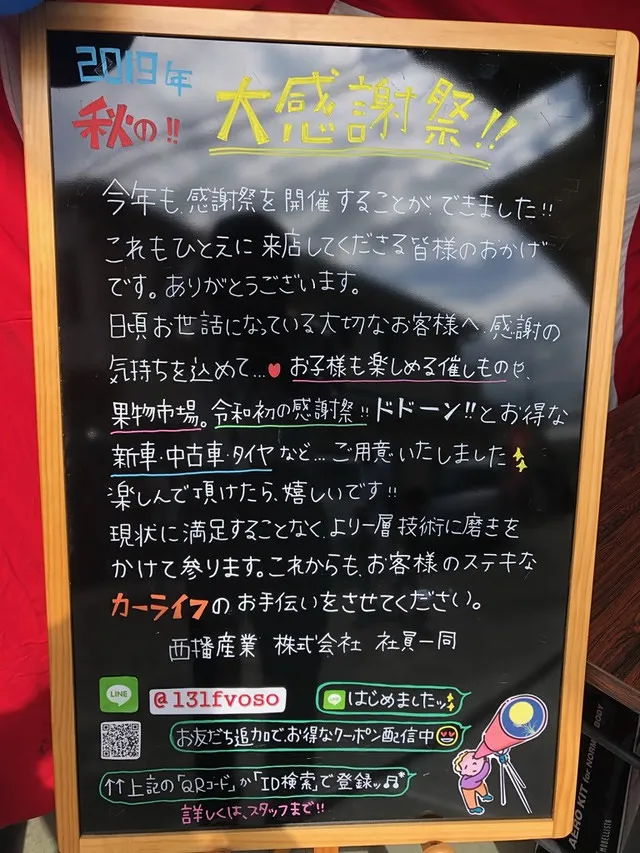 2019年
秋の!!
大感謝祭!!
今年も、感謝祭を開催することができました!!
これもひとえに来店してくださる皆様のおかげ
です。ありがとうございます。
日頃お世話になっている大切なお客様へ、感謝の
気持ちを込めて...♥ お子様も楽しめる催しものや、
果物市場。令和初の感謝祭!!ドドーン!!とお得な
新車・中古車・タイヤなど...ご用意いたしました
楽しんで頂けたら、嬉しいです!!
現状に満足することなく、より一層技術に磨きを
かけて参ります。これからも、お客様のステキな
カーライフのお手伝いをさせてください。
西播産業 株式会社 社員一同
LINE
@131fvoso
LINE はじめましたッ
お友だち追加で、お得なクーポン配信中
↑↑上記の「QRコード」か「ID検索」で登録ッ♫
詳しくは、スタッフまで!!
AERO KIT for NORM BODY
MODELLISTA